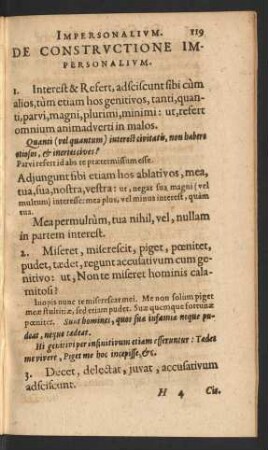 IMPERSONALIVM. 119
DE CONSTRVCTIONE IM-
PERSONALIVM.
1. Interest & Refert, adsciscunt sibi cùm
alios, tùm etiam hos genitivos, tanti, quan-
ti, parvi, magni, plurimi, minimi: ut, refert
omnium animadverti in malos.
Quanti (vel quantum) interest civitatis, non habere
otiosos, & inertes cives?
Parvi refert id abs te prætermissum esse.
Adjungunt sibi etiam hos ablativos, mea,
tua, sua, nostra, vestra: ut, negat sua magni (vel
multum) interesse: mea plus, vel minus interest, quàm
tua.
Mea permultùm, tua nihil, vel, nullam
in partem interest.
2. Miseret, miserescit, piget, pœnitet,
pudet, tædet, regunt accusativum cum ge-
nitivo: ut, Non te miseret hominis cala-
mitosi?
Inopis nunc te miserescat mei. Me non solùm piget
meæ stultitiæ, sed etiam pudet. Suæ quemque fortunæ
pœnitet. Sunt homines, quos suæ infamiæ neque pu-
deat, neque tædeat.
Hi genitivi per infinitivum etiam efferuntur: Tædet
me vivere, Piget me hoc incepisse, &c.
3. Decet, delectat, juvat, accusativum
adsciscunt.
H 4 Cic.